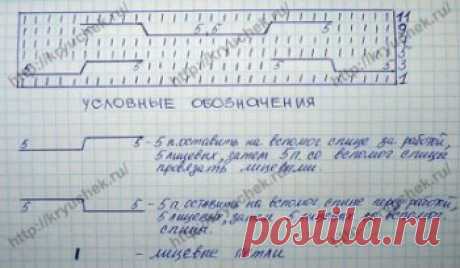 11
9
5 5,5 5
7
5
5 5 5 5 3
1
УСЛОВНЫЕ ОБОЗНАЧЕНИЯ
5 5 - 5 п. оставить на вспомог спице за работой,
5 лицевых, затем 5 п. со вспомог спицы
провязать лицевыми
5 5 - 5 п. оставить на вспомог спице перед работой,
5 лицевых, затем 5 лицевых со вспомог
спицы.
I - лицевые петли
http://kryuchek.ru/
postila.ru